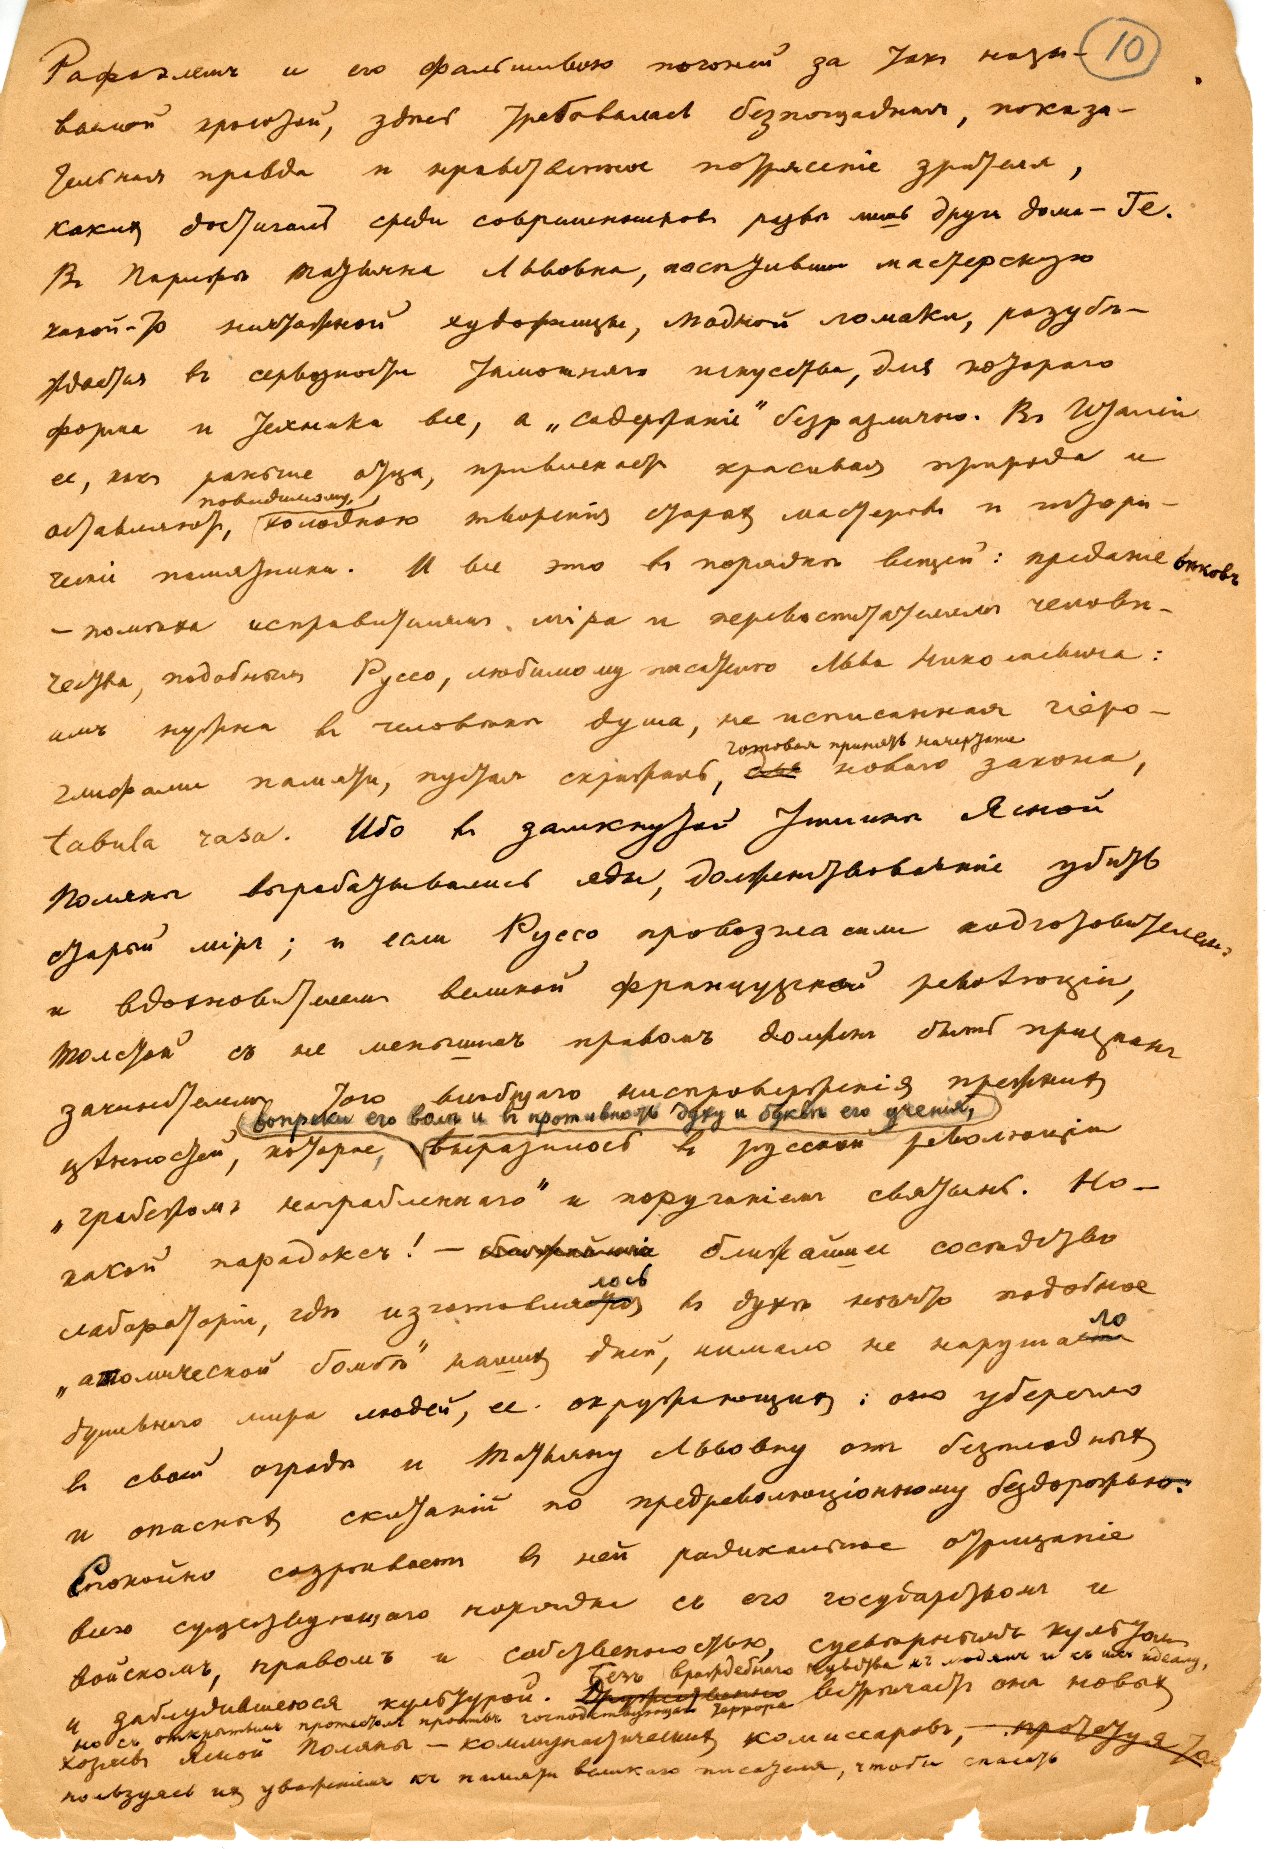 10
Рафаэлемъ и его фальшивою погоней за такъ назы-
ваемой красотой, здѣсь требовалась безпощадная, показа-
тельная правда и нравственное потрясеніе зрителя,
какихъ достигалъ среди современниковъ развѣ лишь другъ дома – Ге.
Въ Парижѣ Татьяна Львовна, посѣтивши мастерскую
какой-то художницы, модной ломаки, разубѣ-
ждается въ серьозности тамошняго искусства, для котораго
форма и техника все, а „содержаніе" безразлично. Въ Италіи
ее, какъ раньше отца, привлекаетъ красивая природа и
оставляютъ, повидимому, холодною творенія старыхъ мастеровъ и истори-
ческіе памятники. И все это въ порядкѣ вещей: преданіе вѣковъ
– помѣха исправителямъ міра и перевоспитателямъ человѣ-
чества, подобнымъ Руссо, любимому писателю Льва Николаевича:
имъ нужна въ человѣкѣ душа, не исписанная гіеро-
глифами памяти, пустая скрижаль, готовая принять начертанія новаго закона,
tabula rasa. Ибо въ замкнутой тишинѣ Ясной
Поляны вырабатывались яды, долженствовавшіе убить
старый міръ; и если Руссо провозгласили подготовителемъ
и вдохновителемъ великой французской революціи,
Толстой съ не меньшимъ правомъ долженъ быть признанъ
зачинателемъ того всеобщаго ниспроверженія прежнихъ
цѣнностей, которое, вопреки его волѣ и въ противность духу и буквѣ его ученія, выразилось въ русской революціи
„грабежомъ награбленнаго" и поруганіемъ святынь. Но –
какой парадоксъ! – ближайшее сосѣдство
лабораторіи, гдѣ изготовлялось въ духѣ нѣчто подобное
„атомической бомбѣ" нашихъ дней, нимало не нарушало
душевнаго мира людей, ее окружающихъ: оно уберегло
въ своей оградѣ и Татьяну Львовну отъ безплодныхъ
и опасныхъ скитаній по предреволюціонному бездорожью.
Спокойно созрѣваетъ въ ней радикальное отрицаніе
всего существующаго порядка съ его государствомъ и
войскомъ, правомъ и собственностью, суевѣрнымъ культомъ
и заблудившеюся культурой. Безъ враждебнаго чувства къ людямъ и къ ихъ идеалу,
но съ открытымъ протестомъ противъ господствующаго террора встрѣчаетъ она новыхъ
хозяевъ Ясной Поляны – коммунистическихъ комиссаровъ, –
пользуясь ихъ уваженіемъ къ памяти великаго писателя, чтобы спасать